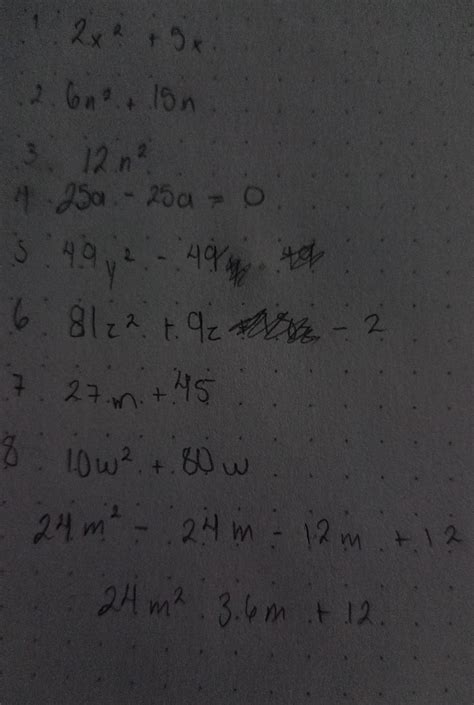 1. 2x² + 9x
2. 6n² + 15n
3 12n²
4 25a - 25a = 0
5 49y² - 49
6 81z² + 9z - 2
7 27m + 45
8 10w² + 80w
24m² - 24m - 12m + 12
24m² 36m + 12